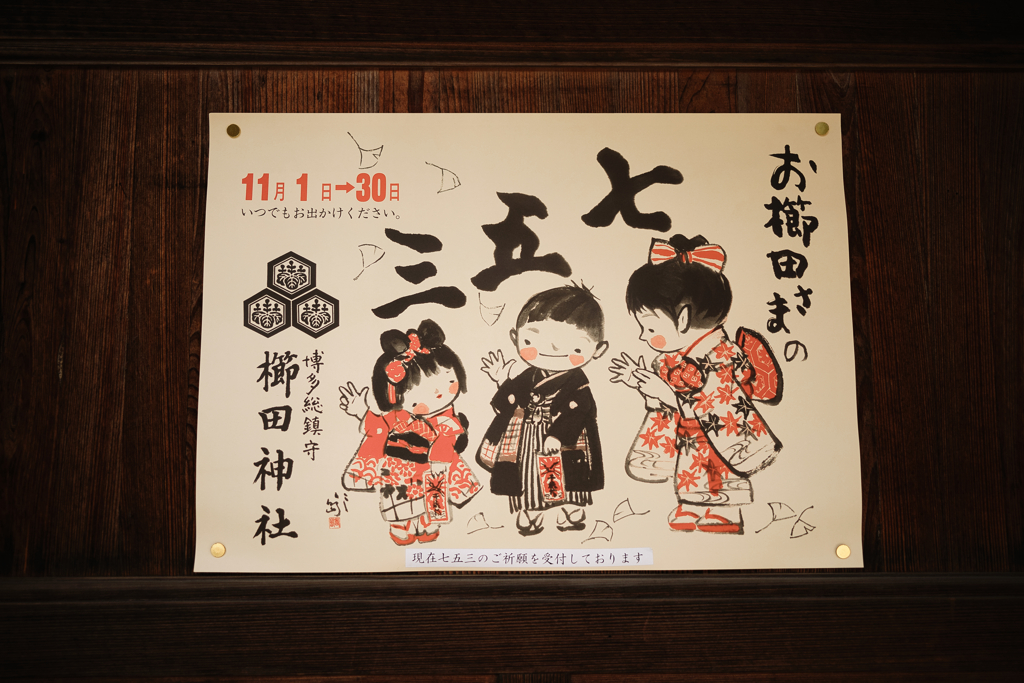 お櫛田さまの
七五三
11月1日→30日
いつでもお出かけください。
博多総鎮守
櫛田神社
現在七五三のご祈願を受付しております